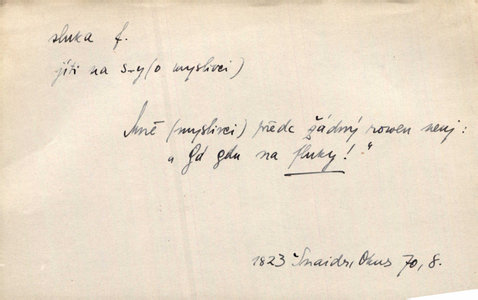 sluka f.
jíti na s-y (o myslivci)
Mně (myslivci) přede žádný rowen nenj:
„Gd gdu na sluky!“
1823 Šnaidr, Okus 70, 8.